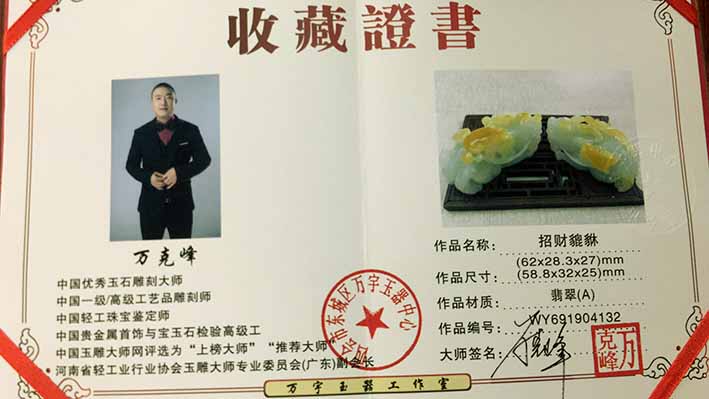 收藏證書
万克峰
中国优秀玉石雕刻大师
中国一级/高级工艺品雕刻师
中国轻工珠宝鉴定师
中国贵金属首饰与宝玉石检验高级工
中国玉雕大师网评选为“上榜大师”“推荐大师”
河南省轻工业行业协会玉雕大师专业委员会(广东)副会长
会市东城区万宇玉器中心
作品名称：
招财貔貅
作品尺寸：
(62x28.3x27)mm
(58.8x32x25)mm
作品材质：
翡翠(A)
作品编号：
WY691904132
大师签名：
万克峰
万宇玉器工作室